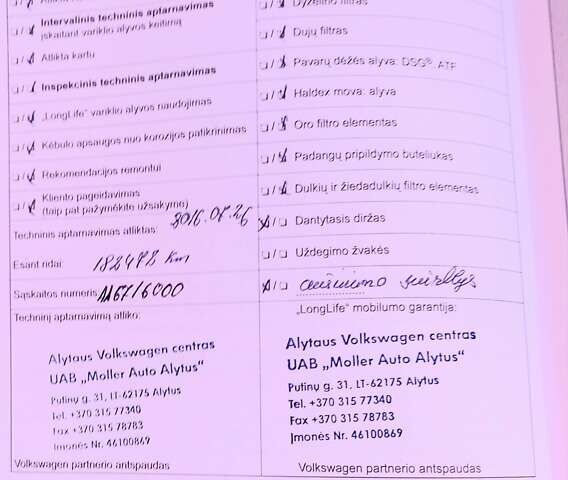 Intervalinis techninis aptarnavimas
įskaitant variklio alyvos keitimą
Atlikta kartu
Inspekcinis techninis aptarnavimas
„LongLife“ variklio alyvos naudojimas
Kėbulo apsaugos nuo korozijos patikrinimas
Rekomendacijos remontui
Kliento pageidavimas
(taip pat pažymėkite užsakyme)
Techninis aptarnavimas atliktas:
Esant ridai: 182478 Km
Sąskaitos numeris:
Techninį aptarnavimą atliko:
Alytaus Volkswagen centras
UAB „Moller Auto Alytus“
Putinų g. 31, LT-62175 Alytus
Tel. +370 315 77340
Fax +370 315 78783
Įmonės Nr. 46100869
Volkswagen partnerio antspaudas
Dyzelino filtras
Dujų filtras
Pavarų dėžės alyva: DSG®, ATF
Haldex mova: alyva
Oro filtro elementas
Padangų pripildymo buteliukas
Dulkių ir žiedadulkių filtro elementas
Dantytasis diržas
Uždegimo žvakės
„LongLife“ mobilumo garantija:
Alytaus Volkswagen centras
UAB „Moller Auto Alytus“
Putinų g. 31, LT-62175 Alytus
Tel. +370 315 77340
Fax +370 315 78783
Įmonės Nr. 46100869
Volkswagen partnerio antspaudas